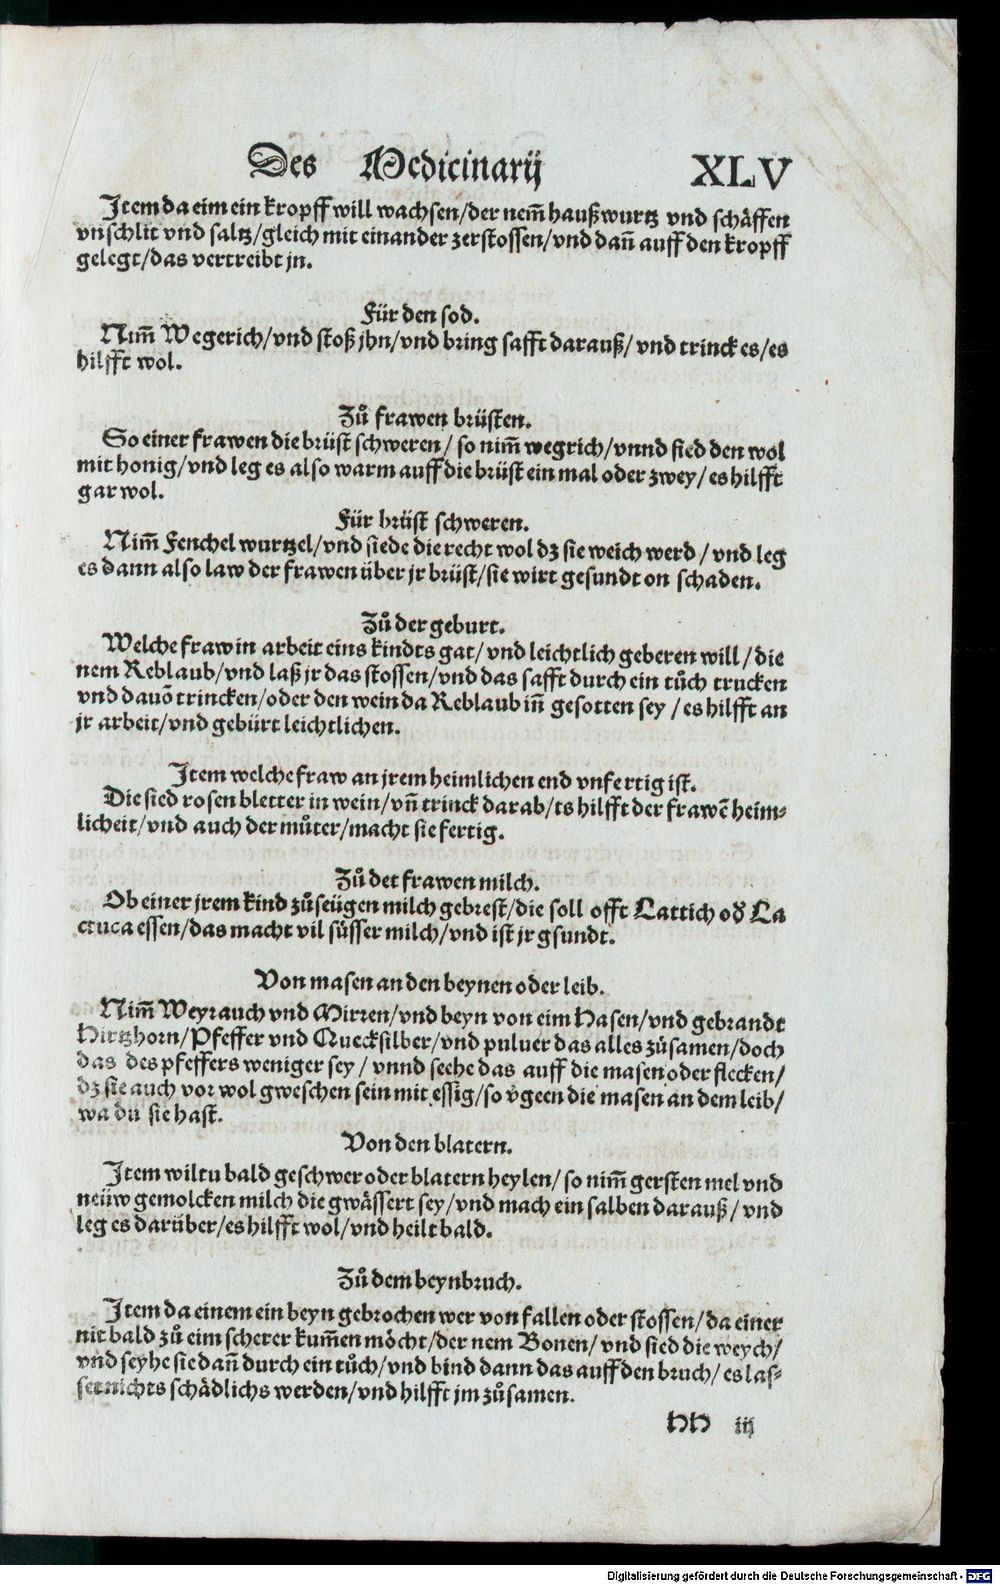 Des Medicinarij XLV
Item da eim ein kropff will wachsen/der nem̃ haußwurtz vnd schåffen
vnschlit vnd saltz/gleich mit einander zerstossen/vnd dañ auff den kropff
gelegt/das vertreibt jn.
Für den sod.
Nim̃ Wegerich/vnd stoß jhn/vnd bring safft darauß/vnd trinck es/es
hilfft wol.
Zů frawen brüsten.
So einer frawen die brüst schweren/so nim̃ wegrich/vnnd sied den wol
mit honig/vnd leg es also warm auff die brüst ein mal oder zwey/es hilfft
gar wol.
Für brüst schweren.
Nim̃ Fenchel wurtzel/vnd siede die recht wol dz sie weich werd/vnd leg
es dann also law der frawen über jr brüst/sie wirt gesundt on schaden.
Zů der geburt.
Welche fraw in arbeit eins kindts gat/vnd leichtlich geberen will/die
nem Reblaub/vnd laß jr das stossen/vnd das safft durch ein tůch trucken
vnd dauō trincken/oder den wein da Reblaub iñ gesotten sey/es hilfft an
jr arbeit/vnd gebürt leichtlichen.
Item welche fraw an jrem heimlichen end vnfertig ist.
Die sied rosen bletter in wein/vñ trinck darab/ts hilfft der frawē heim-
licheit/vnd auch der můter/macht sie fertig.
Zů det frawen milch.
Ob einer jrem kind zů seügen milch gebrest/die soll offt Lattich oď La
ctuca essen/das macht vil süsser milch/vnd ist jr gsundt.
Von masen an den beynen oder leib.
Nim̃ Weyrauch vnd Mirren/vnd beyn von eim Hasen/vnd gebrandt
Hirtzhorn/Pfeffer vnd Quecksilber/vnd puluer das alles zůsamen/doch
das des pfeffers weniger sey/vnnd seehe das auff die masen oder flecken/
dz sie auch vor wol gweschen sein mit essig/so v̊geen die masen an dem leib/
wa du sie hast.
Von den blatern.
Item wiltu bald geschwer oder blatern heylen/so nim̃ gersten mel vnd
neüw gemolcken milch die gwåssert sey/vnd mach ein salben darauß/vnd
leg es darüber/es hilfft wol/vnd heilt bald.
Zů dem beynbruch.
Item da einem ein beyn gebrochen wer von fallen oder stossen/da einer
nit bald zů eim scherer kum̃en möcht/der nem Bonen/vnd sied die weych/
vnd seyhe sie dañ durch ein tůch/vnd bind dann das auff den bruch/es las-
set nichts schådlichs werden/vnd hilfft jm zůsamen.
HH iij
Digitalisierung gefördert durch die Deutsche Forschungsgemeinschaft - DFG